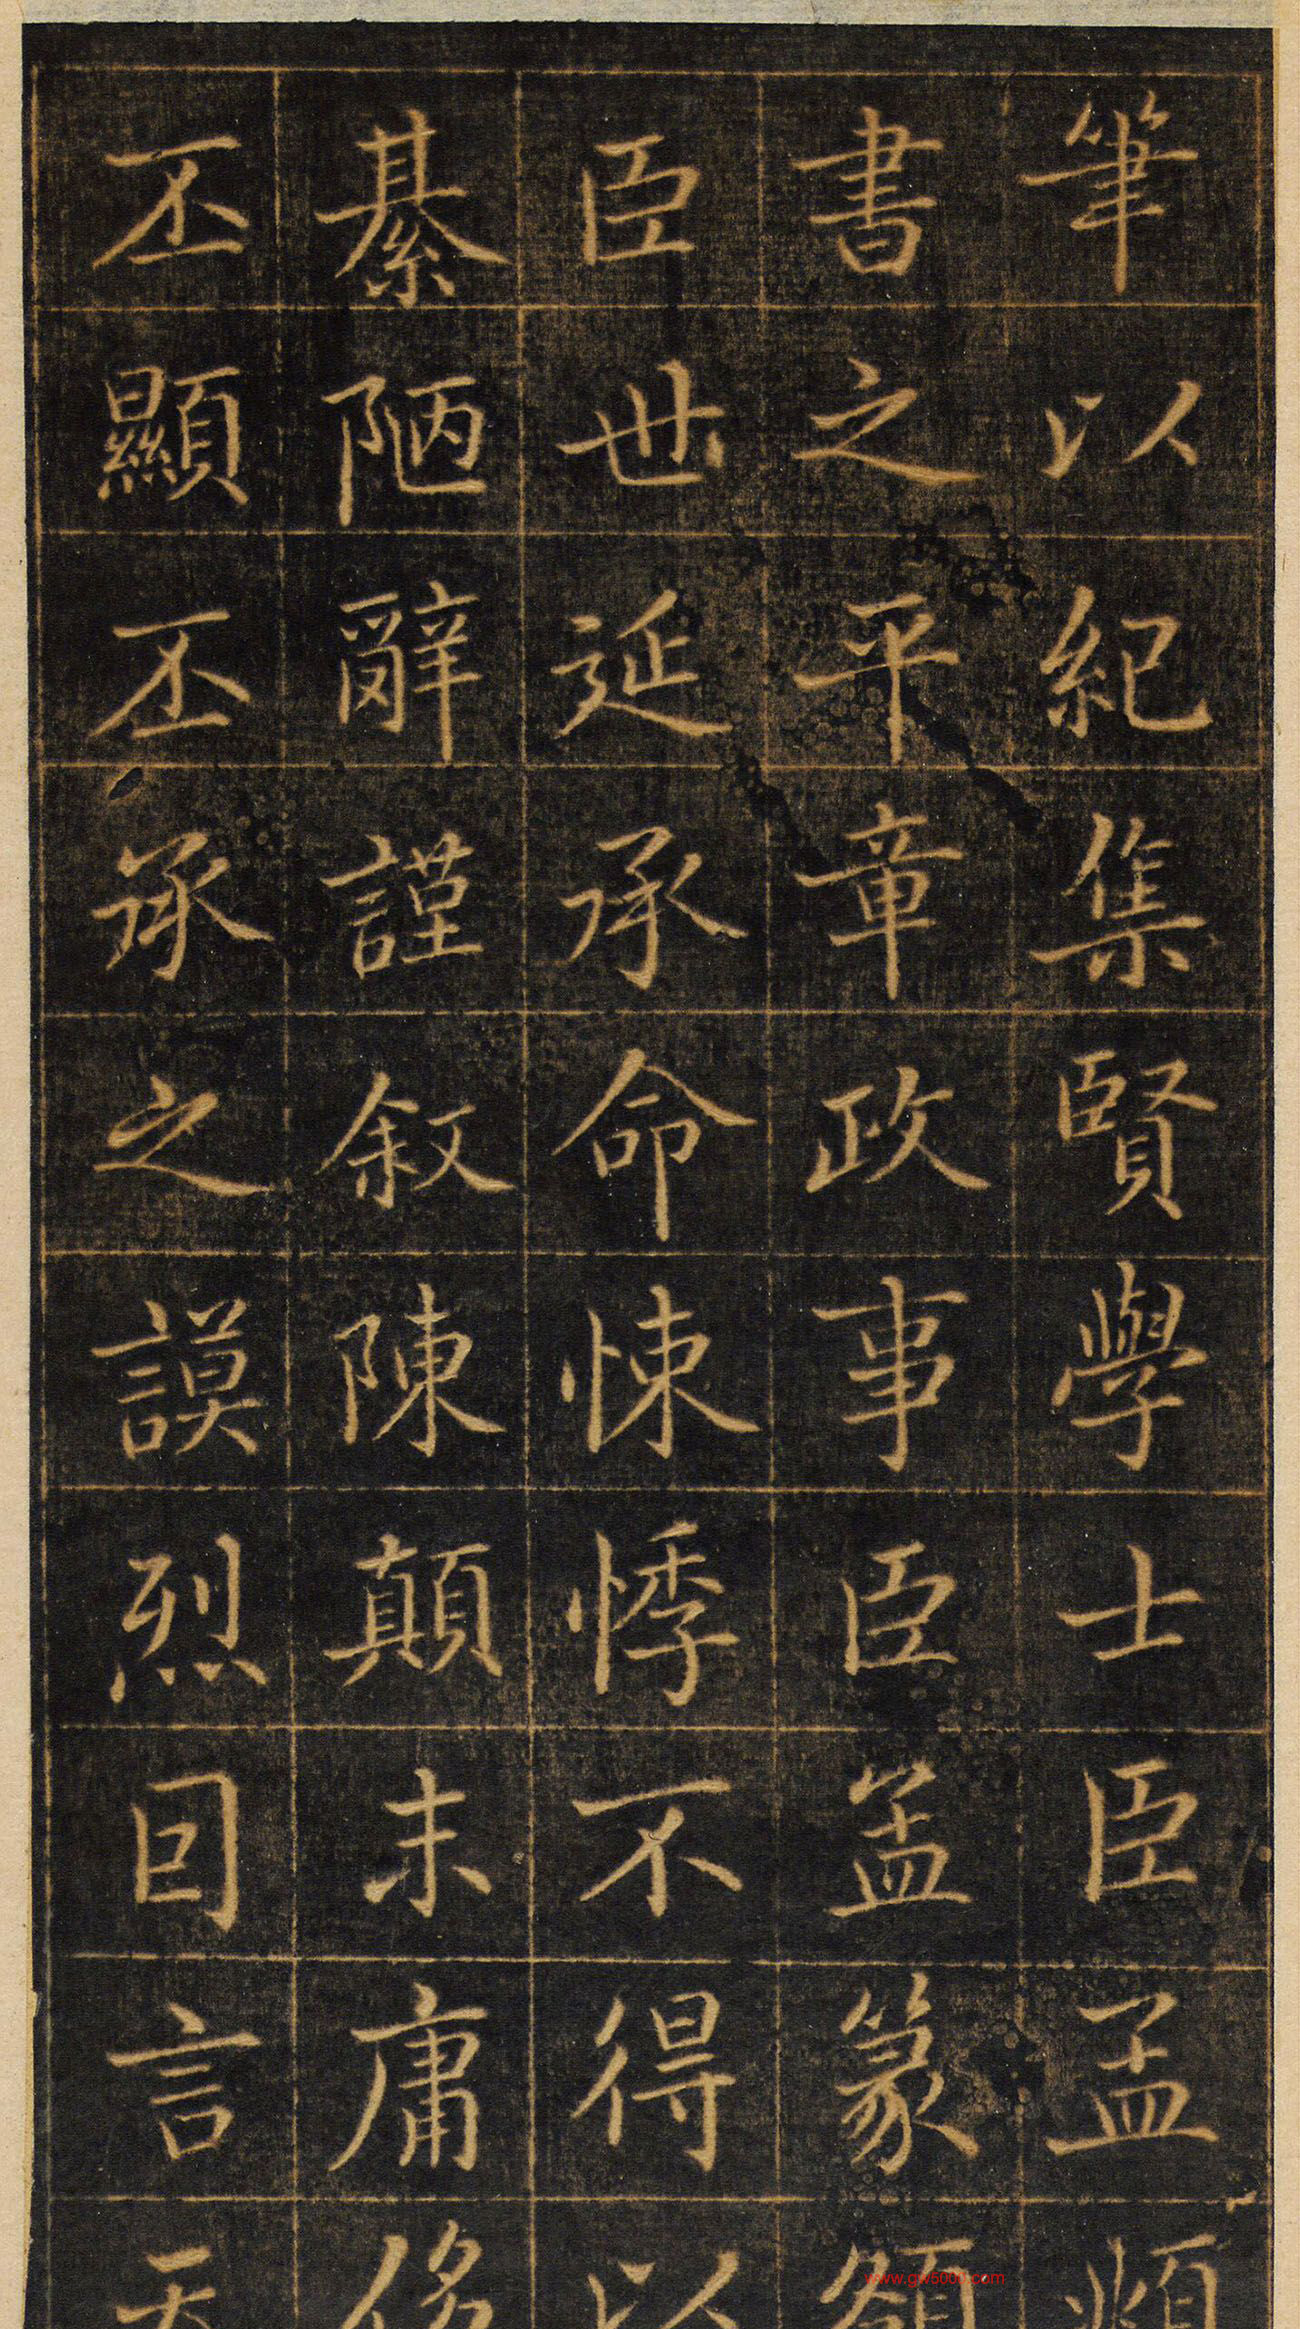 筆以紀集賢學士臣孟頫
書之平章政事臣盖篆額
臣世延承命悚悸不得以
綦陋辭謹敘陳顛末庸侈
丕顯丕承之謨烈囙言天
www.gw500d.com